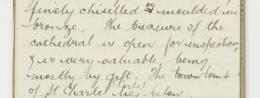 finely chiselled or moulded in
bronze. The treasure of the
cathedral is open for inspection
& is very valuable, being
mostly by gift. The tomb
of St Charles lies below